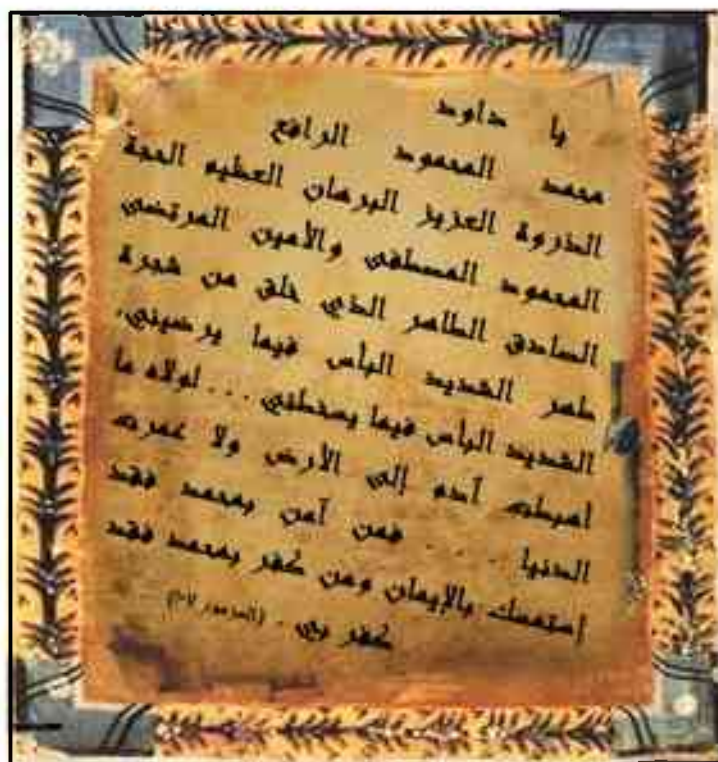 يا داود
محمد المحمود الرافع
الذروة العزيز البرهان العظيم الحجة
المحمود المصطفى والأمين المرتضى
الصادق الطاهر الذي خلق من شجرة
طهر الشديد البأس فيما يرضيني،
الشديد البأس فيما يسخطني ... لولاه ما
أهبطت آدم إلى الأرض ولا عمرت
الدنيا .... فمن آمن بمحمد فقد
إستمسك بالإيمان ومن كفر بمحمد فقد
كفر بي . (المزمور ١٠٧)